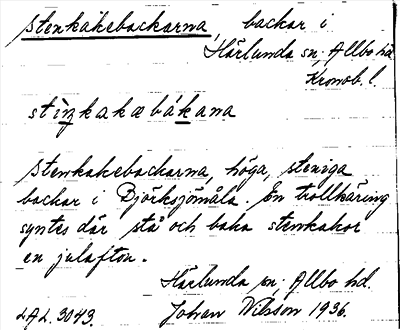 Stenkakebackarna, backar i
Härlunda sn, Allbo hd.
Kronob. l.
stìn̲kakæbák̲ana
Stenkakebackarna, höga, steniga
backar i Björksjömåla. En trollkäring
syntes där stå och baka stenkakor
en julafton.
Härlunda sn; Allbo hd.
LAL. 3043. Johan Nilsson 1936.